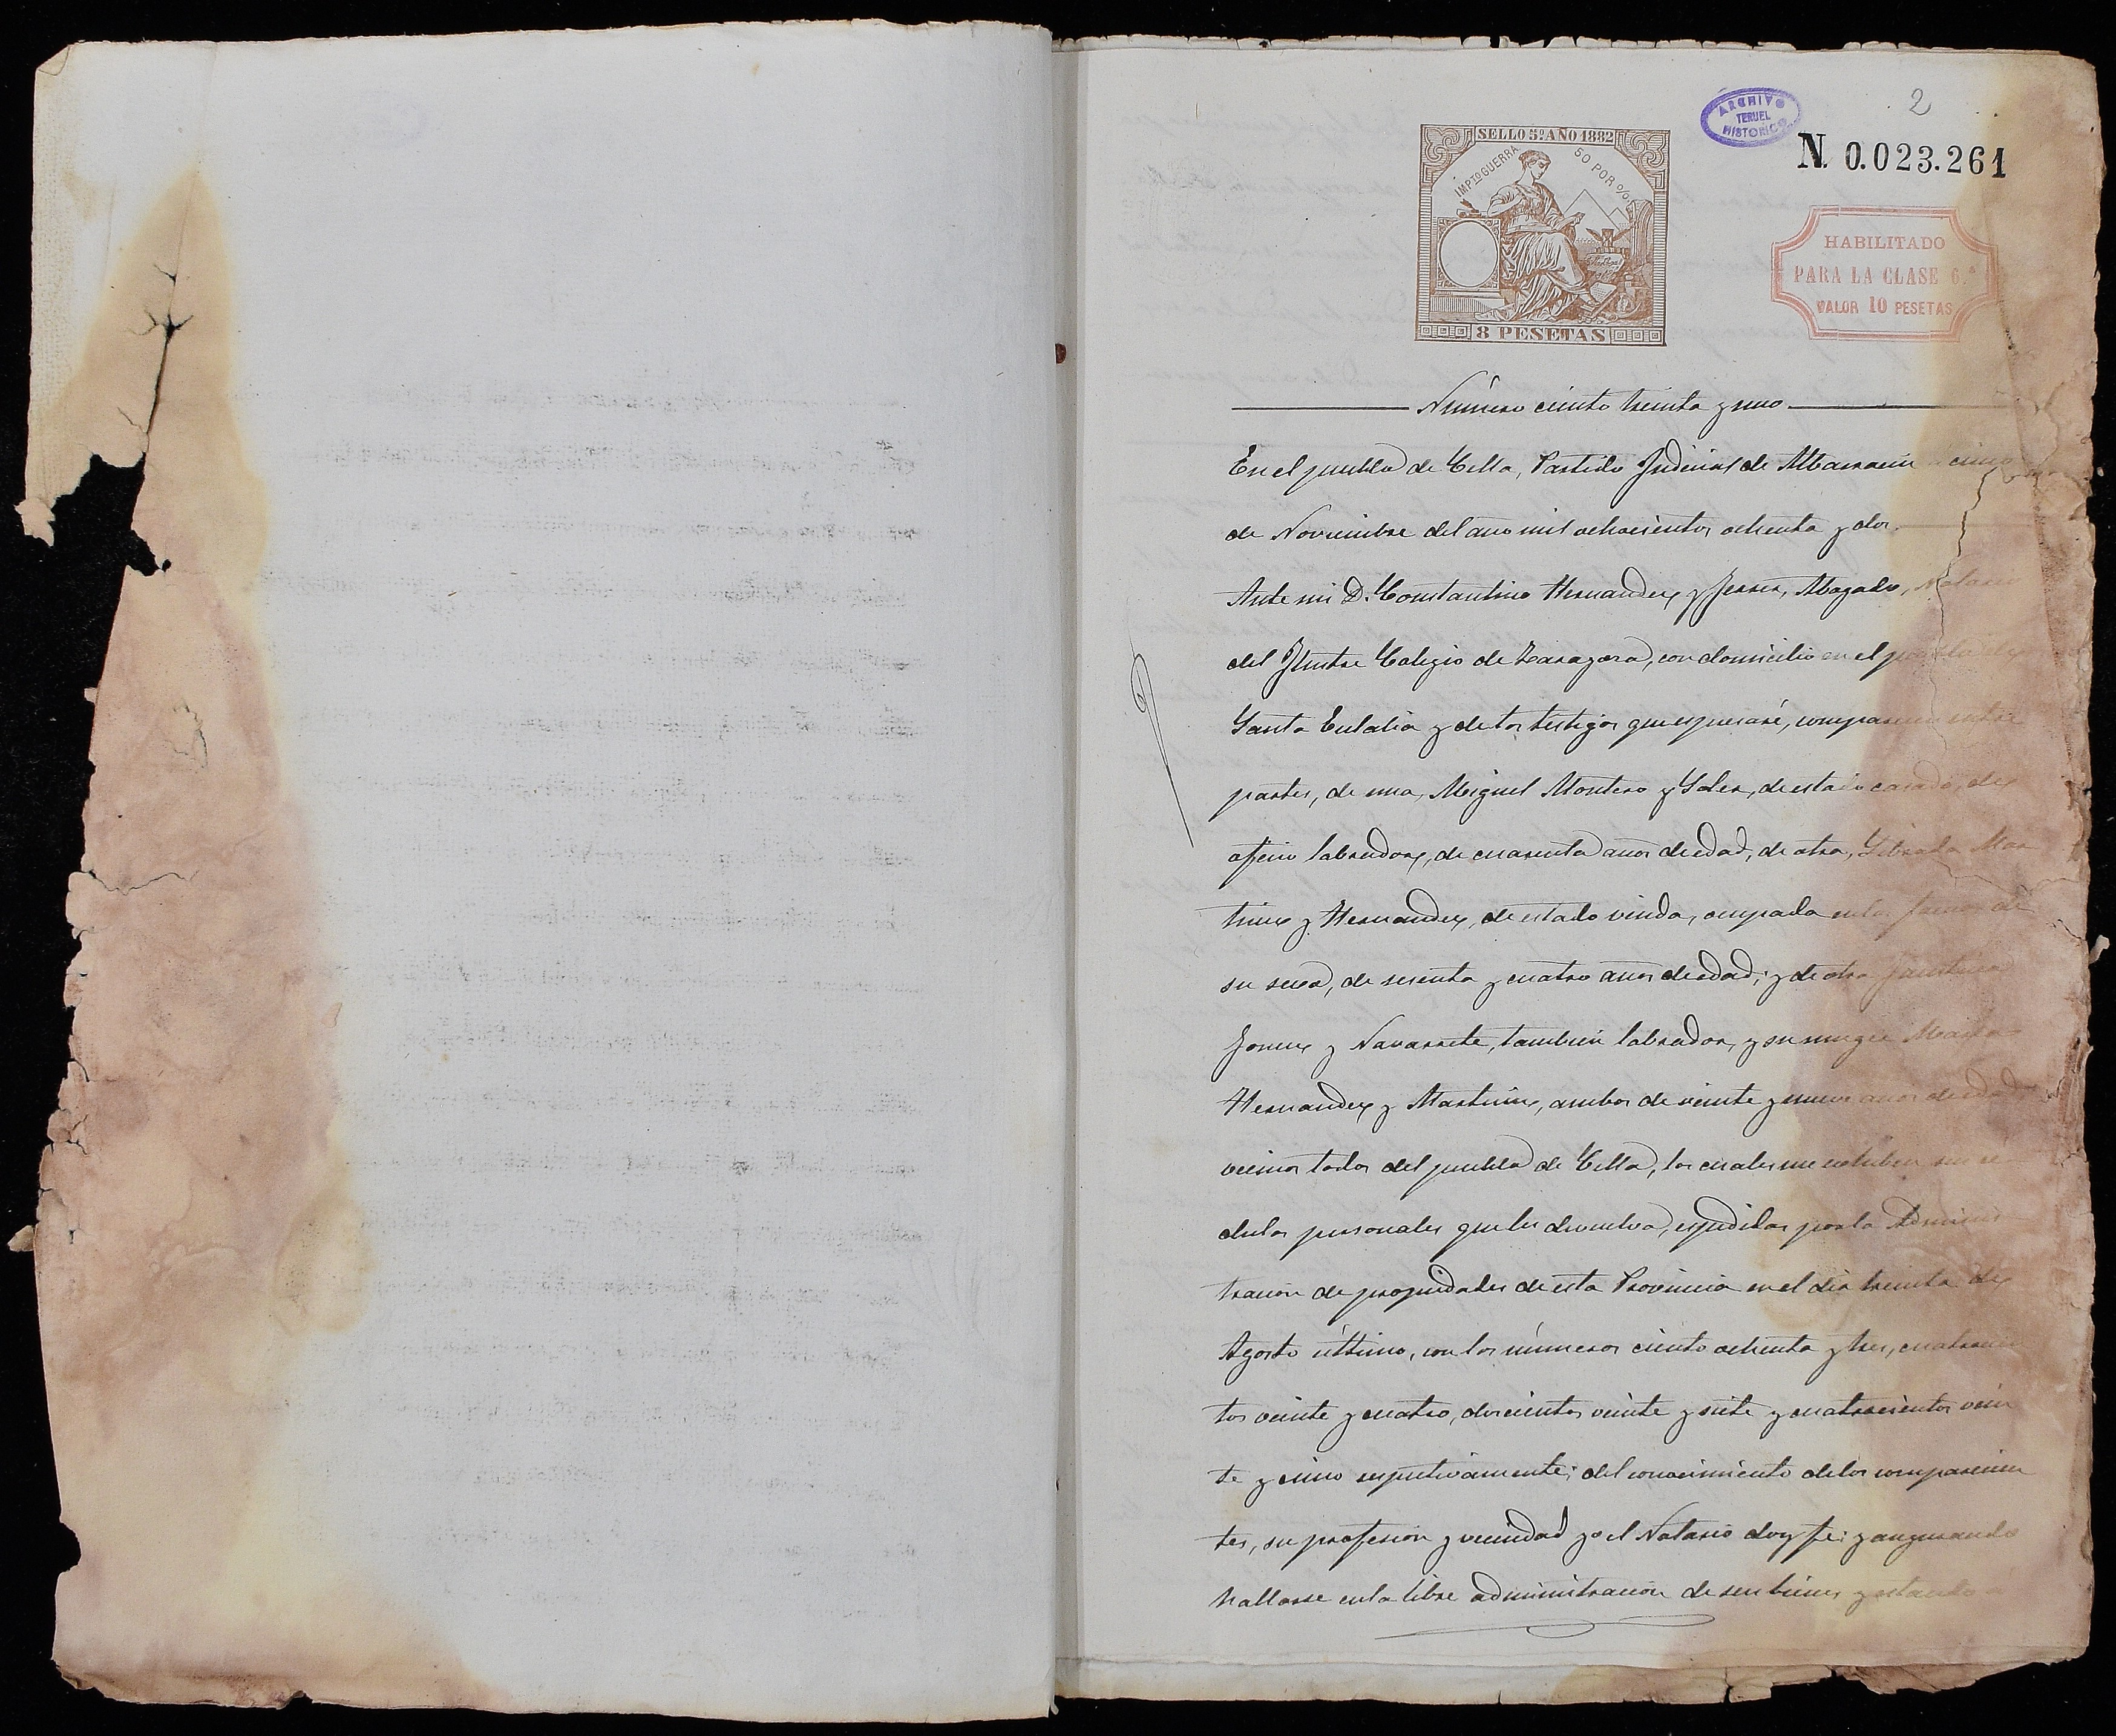 2
ARCHIVO
TERUEL
HISTORICO
N. 0.023.261
SELLO 5º AÑO 1882
IMPTO GUERRA 50 POR %
8 PESETAS
HABILITADO
PARA LA CLASE 6.ª
VALOR 10 PESETAS
Número ciento treinta y uno
En el pueblo de Cella, Partido Judicial de Albarracin a cinco
de Noviembre del año mil ochocientos ochenta y dos.
Ante mi D. Constantino Hernandez y Ferrer, Abogado, Notario
del Ilustre Colegio de Zaragoza, con domicilio en el pueblo de
Santa Eulalia y de los testigos que espresaré, comparecen entre
partes, de una, Miguel Montero y Soler, de estado casado, de
oficio labrador, de cuarenta años de edad, de otra, Librada Mar
tinez y Hernandez, de estado viuda, ocupada en las faenas de
su sexo, de sesenta y cuatro años de edad; y de otra
y Navarrete, tambien labrador, y su muger Maria
Hernandez y Martinez, ambos de veinte y nueve años de edad,
vecinos todos del pueblo de Cella, los cuales me exhiben sus cé
dulas personales que les devuelvo, espedidas por la Adminis
tracion de propiedades de esta Provincia en el dia treinta de
Agosto último, con los números ciento ochenta y tres, cuatrocien
tos veinte y cuatro, doscientos veinte y siete y cuatrocientos vein
te y cinco respetivamente; del conocimiento de los comparecien
tes, su profesion y vecindad yo el Notario doy fe; y asegurando
hallarse en la libre administracion de sus bienes y estando